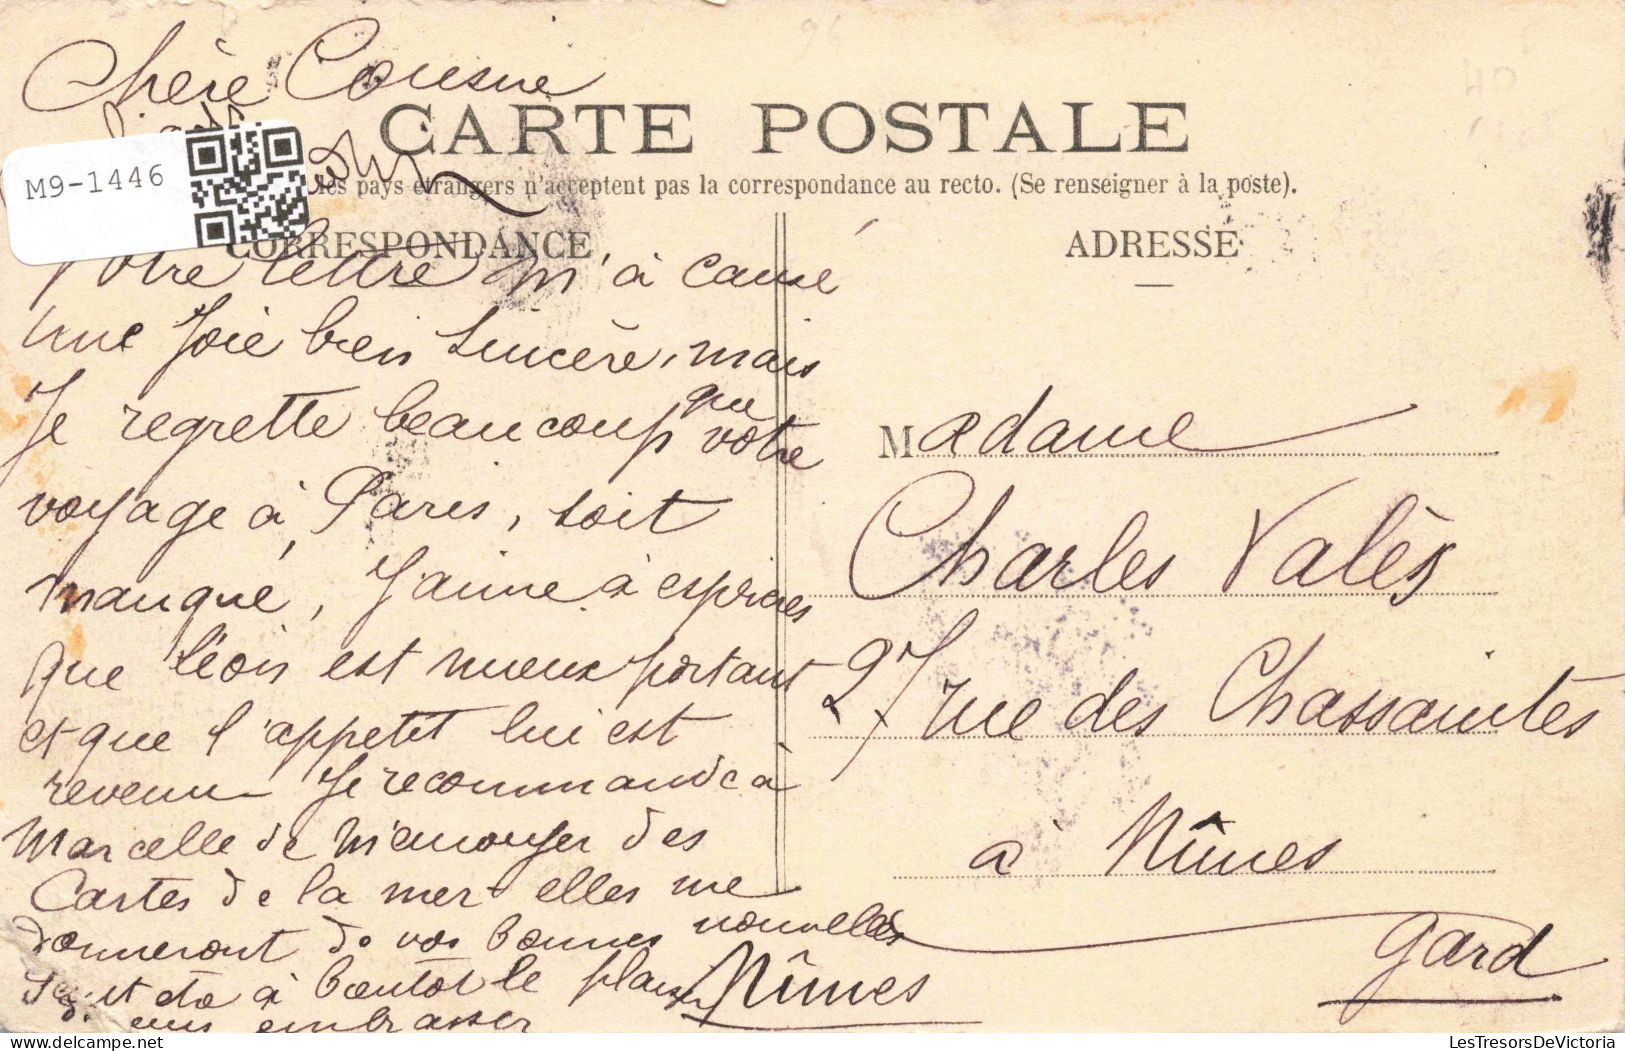 Chère Cousine
CARTE POSTALE
M9-1446
les pays étrangers n'acceptent pas la correspondance au recto. (Se renseigner à la poste).
CORRESPONDANCE
ADRESSE
Votre lettre m'à cause
une Joie bien Sincère, mais
Je regrette beaucoup que votre
voyage à Paris, soit
manqué, J'aime à espérer
que Léon est mieux portant
et que l'appetit lui est
revenu Je recommande à
Marcelle de m'envoyer des
Cartes de la mer elles me
donneront de vos bonnes nouvelles
à bientôt le plaisir
embrasser
Madame
Charles Valès
27 rue des Chassaintes
à Nîmes
Gard
Nîmes
LesTresorsDeVictoria